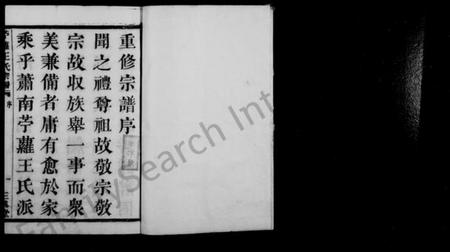 重修宗譜序
聞之禮尊祖故敬宗敬
宗故收族舉一事而衆
美兼備者庸有愈於家
乘乎蕭南苧蘿王氏派
苧蘿王氏宗譜 序
FamilySearch Int